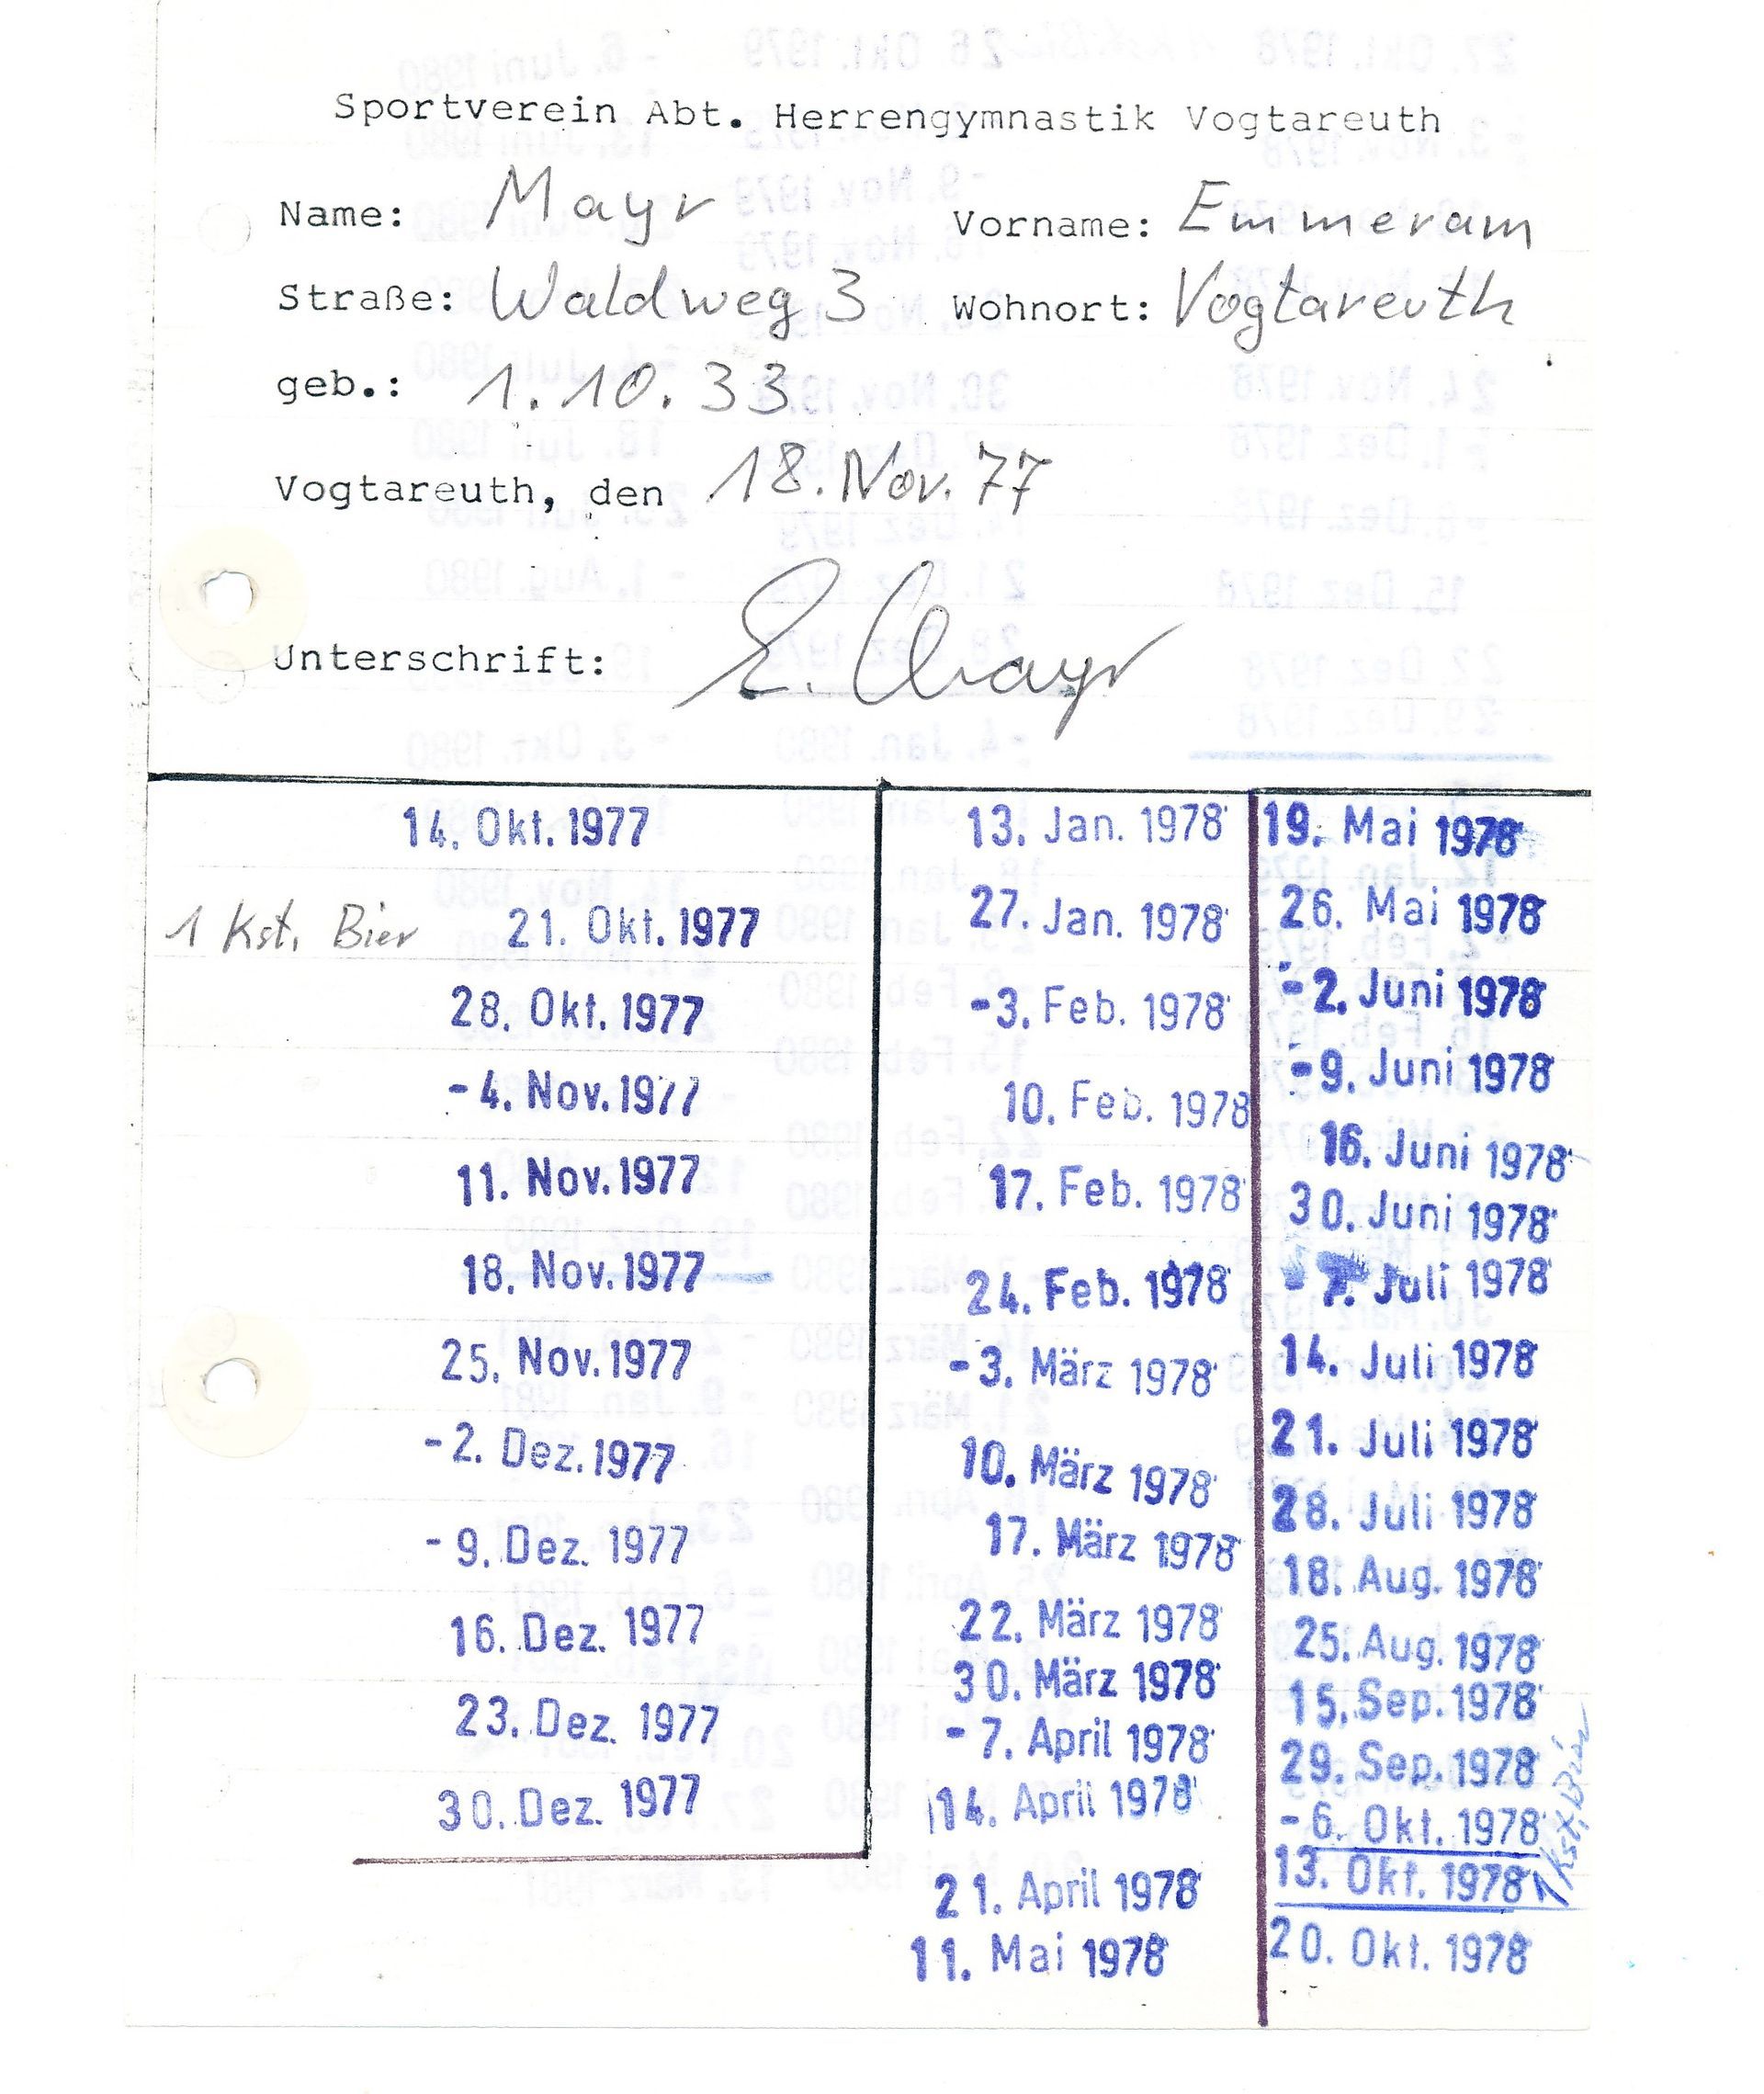 Sportverein Abt. Herrengymnastik Vogtareuth
Name: Mayr Vorname: Emmeram
Straße: Waldweg 3 Wohnort: Vogtareuth
geb.: 1.10.33
Vogtareuth, den 18. Nov. 77
Unterschrift: E. Mayr
14. Okt. 1977
1 Kst. Bier 21. Okt. 1977
28. Okt. 1977
-4. Nov. 1977
11. Nov. 1977
18. Nov. 1977
25. Nov. 1977
-2. Dez. 1977
-9. Dez. 1977
16. Dez. 1977
23. Dez. 1977
30. Dez. 1977
13. Jan. 1978
27. Jan. 1978
-3. Feb. 1978
10. Feb. 1978
17. Feb. 1978
24. Feb. 1978
-3. März 1978
10. März 1978
17. März 1978
22. März 1978
30. März 1978
-7. April 1978
14. April 1978
21. April 1978
11. Mai 1978
19. Mai 1978
26. Mai 1978
-2. Juni 1978
-9. Juni 1978
16. Juni 1978
30. Juni 1978
-7. Juli 1978
14. Juli 1978
21. Juli 1978
28. Juli 1978
18. Aug. 1978
25. Aug. 1978
15. Sep. 1978
29. Sep. 1978
-6. Okt. 1978
13. Okt. 1978
1 Kst. Bier
20. Okt. 1978